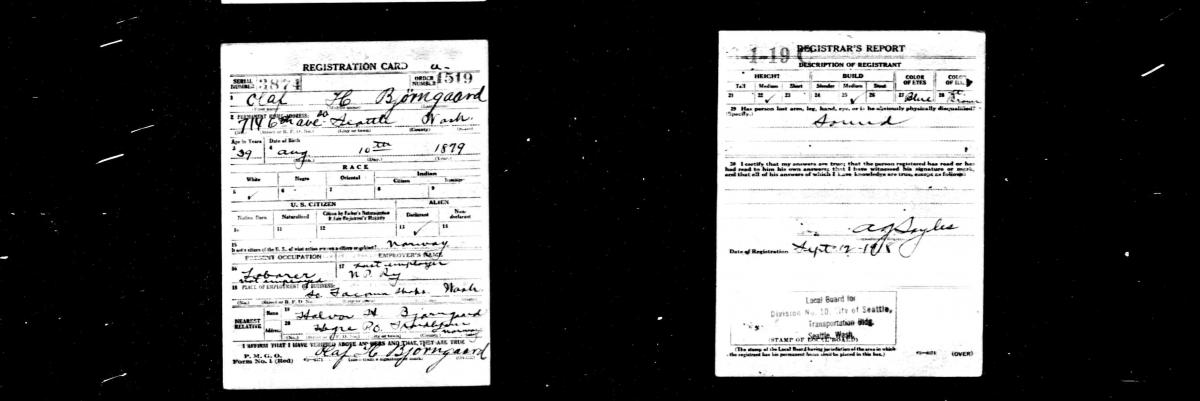 REGISTRATION CARD
SERIAL NUMBER 3874 ORDER NUMBER 1519
1 Olaf H Bjørngaard
2 PERMANENT HOME ADDRESS:
714 6th ave so Seattle Wash.
Age in Years Date of Birth
3 39 4 Aug 10th 1879
RACE
White Negro Oriental Indian
Citizen
5 ✓ 6 7 8 9
U. S. CITIZEN ALIEN
Native Born Naturalized Citizen by Father's Naturalization Before Registrant's Majority Declarant Non-declarant
10 11 12 13 ✓ 14
15 If not a citizen of the U. S., of what nation are you a citizen or subject? Norway
PRESENT OCCUPATION EMPLOYER'S NAME
16 Laborer 17 Last employer
not employed N. P. Ry
18 PLACE OF EMPLOYMENT OR BUSINESS:
So Tacoma Shops Wash
NEAREST RELATIVE Name 19 Halvor H. Bjorngaard
Address 20 P.O. Norway
I AFFIRM THAT I HAVE VERIFIED ABOVE ANSWERS AND THAT THEY ARE TRUE
P. M. G. O.
Form No. 1 (Red) Olaf H Bjørngaard
REGISTRAR'S REPORT
DESCRIPTION OF REGISTRANT
HEIGHT BUILD COLOR OF EYES COLOR OF
Tall Medium Short Slender Medium Stout
21 22 ✓ 23 24 25 ✓ 26 27 Blue 28
29 Has person lost arm, leg, hand, eye, or is he obviously physically disqualified?
(Specify.) Sound
30 I certify that my answers are true; that the person registered has read or has
had read to him his own answers; that I have witnessed his signature or mark,
and that all of his answers of which I have knowledge are true, except as follows:
Date of Registration Sept 12 1918
Local Board for
Division No. 10, City of Seattle,
Transportation Bldg.
Seattle, Wash.
(STAMP OF LOCAL BOARD)
(The stamp of the Local Board having jurisdiction of the area in which
the registrant has his permanent home shall be placed in this box.)
(OVER)